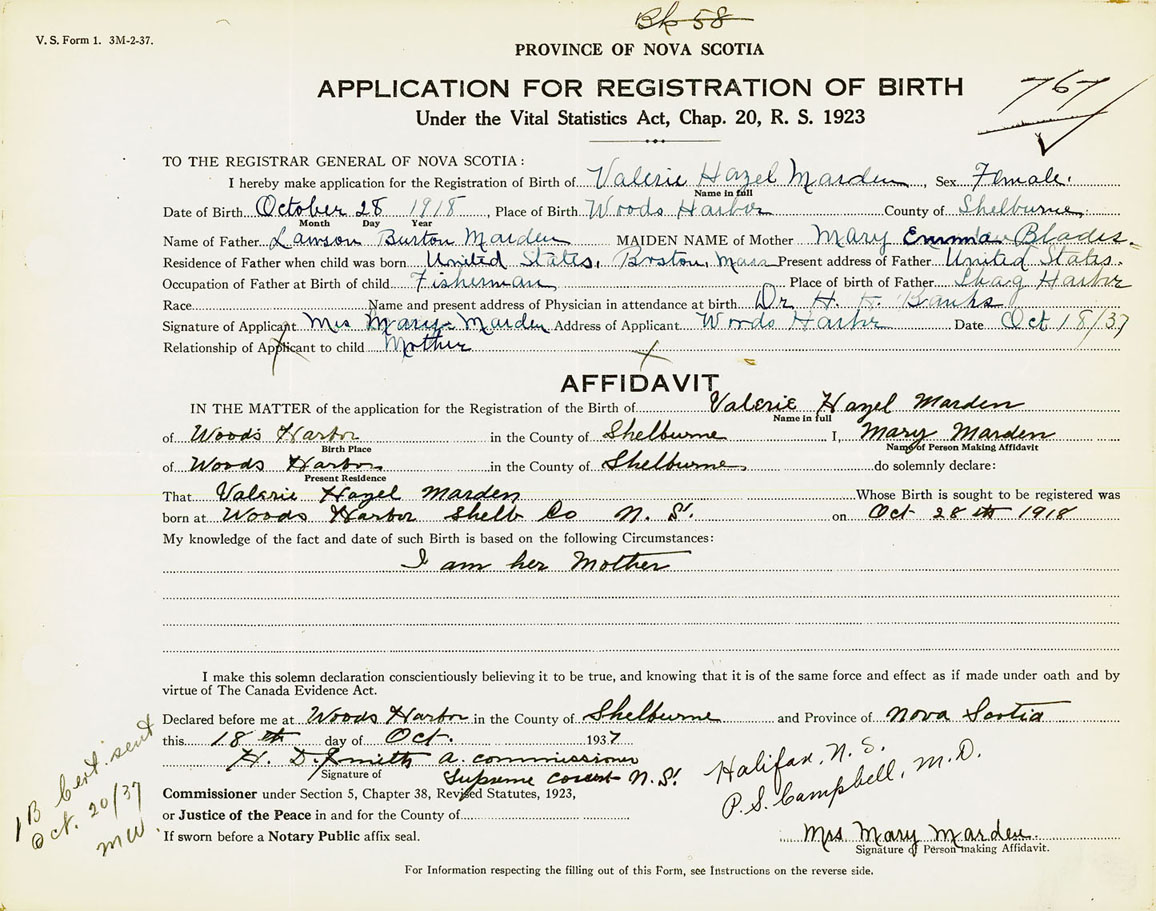 Bk 58
V. S. Form 1. 3M-2-37.
PROVINCE OF NOVA SCOTIA
APPLICATION FOR REGISTRATION OF BIRTH
Under the Vital Statistics Act, Chap. 20, R. S. 1923
767
TO THE REGISTRAR GENERAL OF NOVA SCOTIA:
I hereby make application for the Registration of Birth of Valerie Hazel Marden, Sex Female.
Name in full
Date of Birth October 28 1918, Place of Birth Woods Harbor County of Shelburne
Month Day Year
Name of Father Lawson Burton Marden MAIDEN NAME of Mother Mary Emma Blades.
Residence of Father when child was born United States, Boston, Mass Present address of Father United States.
Occupation of Father at Birth of child Fisherman Place of birth of Father Shag Harbor
Race Name and present address of Physician in attendance at birth Dr H. H. Banks
Signature of Applicant Mrs Mary Marden Address of Applicant Woods Harbor Date Oct 18/37
Relationship of Applicant to child Mother
AFFIDAVIT
IN THE MATTER of the application for the Registration of the Birth of Valerie Hazel Marden
Name in full
of Woods Harbor in the County of Shelburne I, Mary Marden
Birth Place Name of Person Making Affidavit
of Woods Harbor in the County of Shelburne do solemnly declare:
Present Residence
That Valerie Hazel Marden Whose Birth is sought to be registered was
born at Woods Harbor Shelb Co N. S. on Oct 28th 1918
My knowledge of the fact and date of such Birth is based on the following Circumstances:
I am her Mother
I make this solemn declaration conscientiously believing it to be true, and knowing that it is of the same force and effect as if made under oath and by
virtue of The Canada Evidence Act.
Declared before me at Woods Harbor in the County of Shelburne and Province of Nova Scotia
this 18th day of Oct. 1937
H. D. Smith a. commissioner
Signature of Supreme court N.S.
Commissioner under Section 5, Chapter 38, Revised Statutes, 1923,
or Justice of the Peace in and for the County of
If sworn before a Notary Public affix seal.
Halifax, N. S.
P.S. Campbell, M.D.
Mrs Mary Marden
Signature of Person making Affidavit.
1 B Cert. sent
Oct. 20/37
MW.
For Information respecting the filling out of this Form, see Instructions on the reverse side.